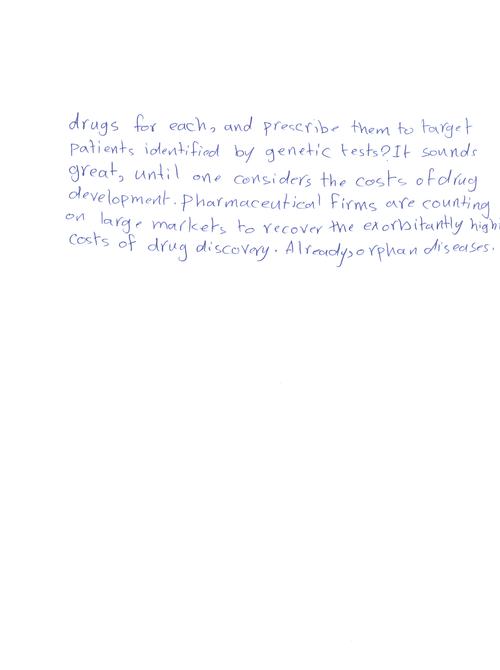 drugs for each, and prescribe them to target
patients identified by genetic tests? It sounds
great, until one considers the costs of drug
development. Pharmaceutical firms are counting
on large markets to recover the exorbitantly high
costs of drug discovery. Already, orphan diseases.